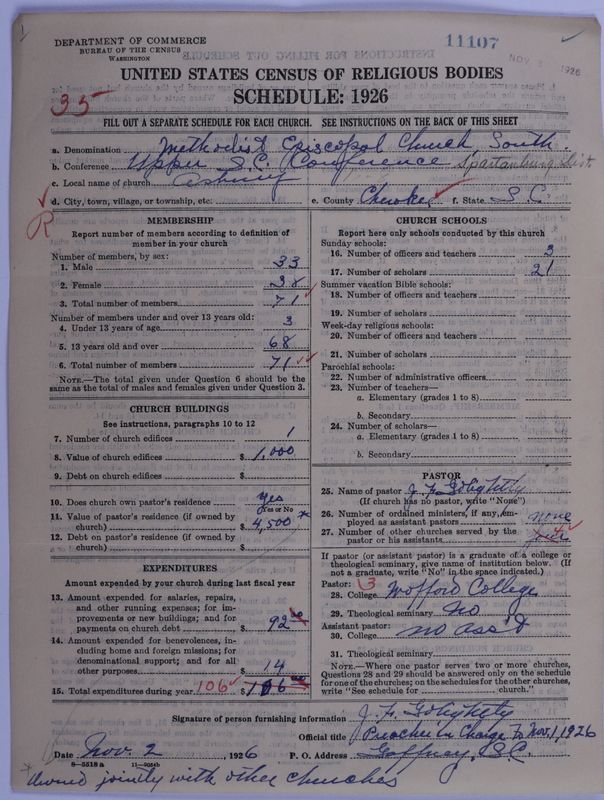 DEPARTMENT OF COMMERCE
BUREAU OF THE CENSUS
WASHINGTON
11107
NOV 3 1926
UNITED STATES CENSUS OF RELIGIOUS BODIES
35
SCHEDULE: 1926
FILL OUT A SEPARATE SCHEDULE FOR EACH CHURCH. SEE INSTRUCTIONS ON THE BACK OF THIS SHEET
a. Denomination Methodist Episcopal Church, South.
b. Conference Upper S.C. Conference Spartanburg Dist
c. Local name of church Asbury
d. City, town, village, or township, etc. e. County Cherokee f. State S.C.
R
MEMBERSHIP
Report number of members according to definition of
member in your church
Number of members, by sex:
1. Male 33
2. Female 38
3. Total number of members 71
Number of members under and over 13 years old:
4. Under 13 years of age 3
5. 13 years old and over 68
6. Total number of members 71
NOTE.—The total given under Question 6 should be the
same as the total of males and females given under Question 3.
CHURCH BUILDINGS
See instructions, paragraphs 10 to 12
7. Number of church edifices 1
8. Value of church edifices $1,000
9. Debt on church edifices $
10. Does church own pastor's residence Yes
(Yes or No)
11. Value of pastor's residence (if owned by
church) $4,500 *
12. Debt on pastor's residence (if owned by
church) $
EXPENDITURES
Amount expended by your church during last fiscal year
13. Amount expended for salaries, repairs,
and other running expenses; for im-
provements or new buildings; and for
payments on church debt $92
14. Amount expended for benevolences, in-
cluding home and foreign missions; for
denominational support; and for all
other purposes $14
15. Total expenditures during year 106 $106
CHURCH SCHOOLS
Report here only schools conducted by this church
Sunday schools:
16. Number of officers and teachers 3
17. Number of scholars 21
Summer vacation Bible schools:
18. Number of officers and teachers
19. Number of scholars
Week-day religious schools:
20. Number of officers and teachers
21. Number of scholars
Parochial schools:
22. Number of administrative officers
23. Number of teachers—
a. Elementary (grades 1 to 8)
b. Secondary
24. Number of scholars—
a. Elementary (grades 1 to 8)
b. Secondary
PASTOR
25. Name of pastor J. F. Golightly
(If church has no pastor, write "None")
26. Number of ordained ministers, if any, em-
ployed as assistant pastors none
27. Number of other churches served by the
pastor or his assistants 4
If pastor (or assistant pastor) is a graduate of a college or
theological seminary, give name of institution below. (If
not a graduate, write "No" in the space indicated.)
Pastor: 3
28. College Wofford College
29. Theological seminary No
Assistant pastor:
30. College no Ass't
31. Theological seminary
NOTE.—Where one pastor serves two or more churches,
Questions 28 and 29 should be answered only on the schedule
for one of the churches; on the schedules for the other churches,
write "See schedule for church."
Signature of person furnishing information J. F. Golightly
Official title Preacher in Charge To Nov. 1, 1926
Date Nov. 2, 1926 P. O. Address Gaffney, S.C.
8—5518 a 11—9084b
* Owned jointly with other churches